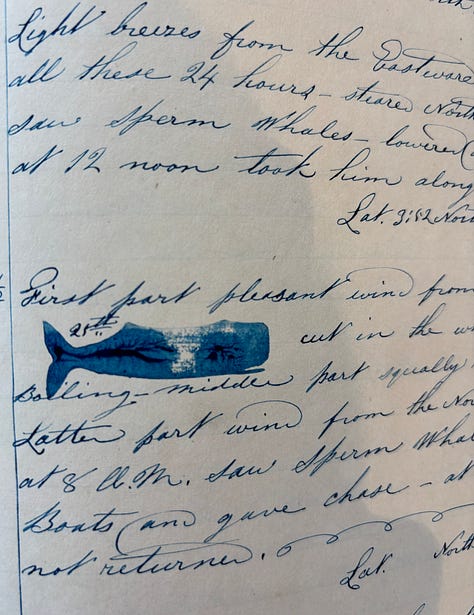 Light breezes from the Eastward
all these 24 hours - steared North
saw sperm Whales - lowered
at 12 noon took him along
Lat. 3:52 Nor
First part pleasant wind from
25th
cut in the w
Boiling - midder part squally
Latter part wind from the Nor
at 8 A.M. saw sperm Wha
Boats and gave chase - at
not returned.
Lat. North